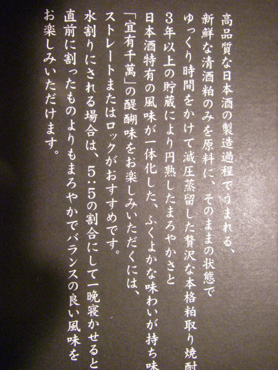 高品質な日本酒の製造過程でうまれる、
新鮮な清酒粕のみを原料に、そのままの状態で
ゆっくり時間をかけて減圧蒸留した贅沢な本格粕取り焼酎
3年以上の貯蔵により円熟したまろやかさと
日本酒特有の風味が一体化した、ふくよかな味わいが持ち味
「宜有千萬」の醍醐味をお楽しみいただくには、
ストレートまたはロックがおすすめです。
水割りにされる場合は、5:5の割合にして一晩寝かせると
直前に割ったものよりもまろやかでバランスの良い風味を
お楽しみいただけます。